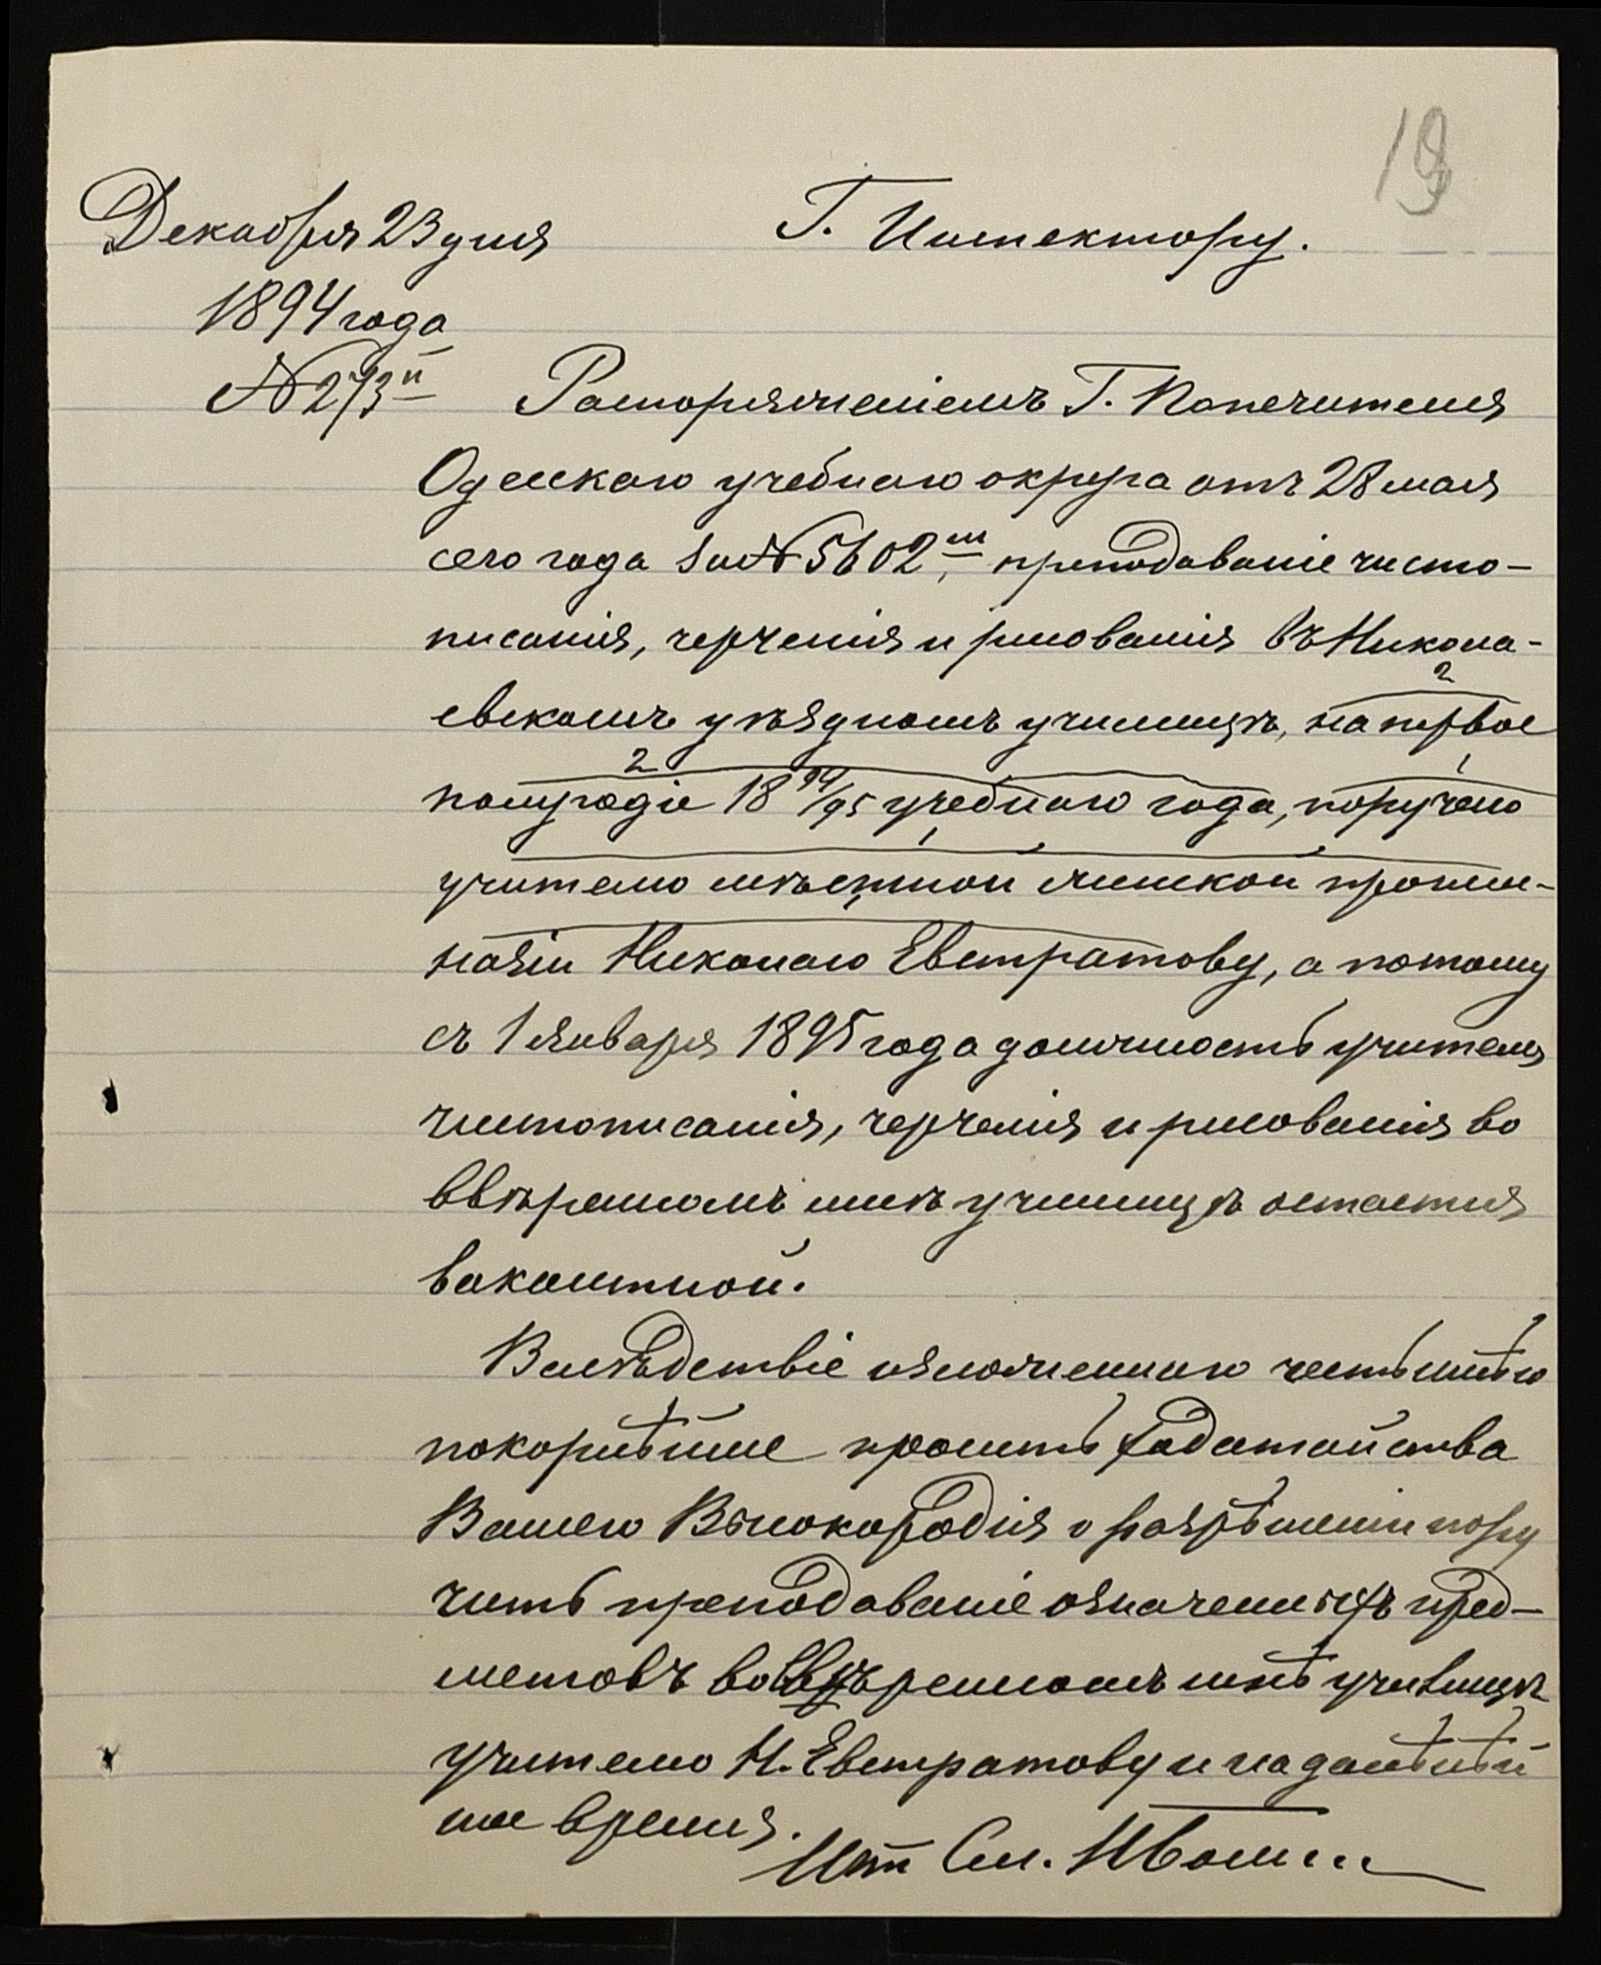 19
Декабря 23 дня
Г. Инспектору.
1894 года
№ 273й
Распоряженіемъ Г. Попечителя
Одесскаго учебнаго округа отъ 28 мая
сего года за № 5602м, преподаваніе чисто-
писанія, черченія и рисованія въ Никола-
2
евскомъ уѣздномъ училищѣ, на первое
2 1
полугодіе 1894/95 учебнаго года, поручено
1
учителю мѣстной женской прогим-
назіи Николаю Евстратову, а потому
съ 1 января 1895 года должность учителя
чистописанія, черченія и рисованія во
ввѣренномъ мнѣ училищѣ остается
вакантной.
Вслѣдствіе изложеннаго честь имѣю
покорнѣйше просить ходатайства
Вашего Высокородія о разрѣшеніи пору
чить преподаваніе означенныхъ пред-
метовъ во ввѣренномъ мнѣ училищѣ
учителю Н. Евстратову и на дальнѣй
шее время.
Шт. См.